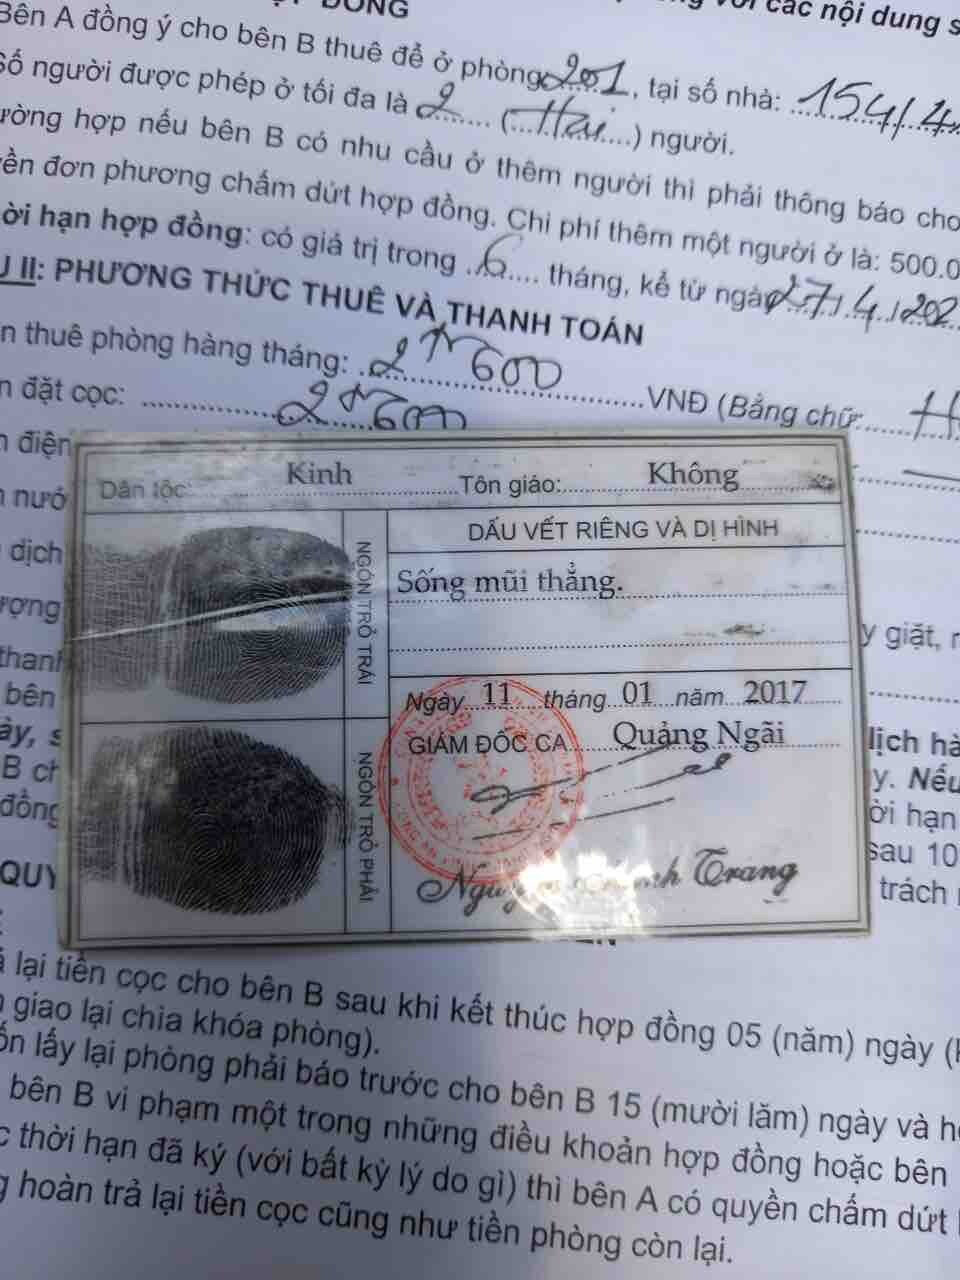 ĐỒNG
với các nội dung s
Bên A đồng ý cho bên B thuê để ở phòng 201, tại số nhà: 154/4
Số người được phép ở tối đa là 2 (Hai) người.
ường hợp nếu bên B có nhu cầu ở thêm người thì phải thông báo cho
ền đơn phương chấm dứt hợp đồng. Chi phí thêm một người ở là: 500.0
ời hạn hợp đồng: có giá trị trong 6 tháng, kể từ ngày 27/4/202
U II: PHƯƠNG THỨC THUÊ VÀ THANH TOÁN
n thuê phòng hàng tháng: 2tr600 VNĐ (Bằng chữ: H
n đặt cọc: 2tr600
n điện
n nướ
dịch
ượng
y giặt,
thanh
bên
ày, s
lịch hà
B ch
y. Nếu
đồng
ời hạn
sau 10
QUY
trách
Dân tộc: Kinh Tôn giáo: Không
NGÓN TRỎ TRÁI
DẤU VẾT RIÊNG VÀ DỊ HÌNH
Sống mũi thẳng.
Ngày 11 tháng 01 năm 2017
GIÁM ĐỐC CA Quảng Ngãi
NGÓN TRỎ PHẢI
Trang
ả lại tiền cọc cho bên B sau khi kết thúc hợp đồng 05 (năm) ngày
giao lại chìa khóa phòng).
ốn lấy lại phòng phải báo trước cho bên B 15 (mười lăm) ngày và
bên B vi phạm một trong những điều khoản hợp đồng hoặc bên
c thời hạn đã ký (với bất kỳ lý do gì) thì bên A có quyền chấm dứt
g hoàn trả lại tiền cọc cũng như tiền phòng còn lại.